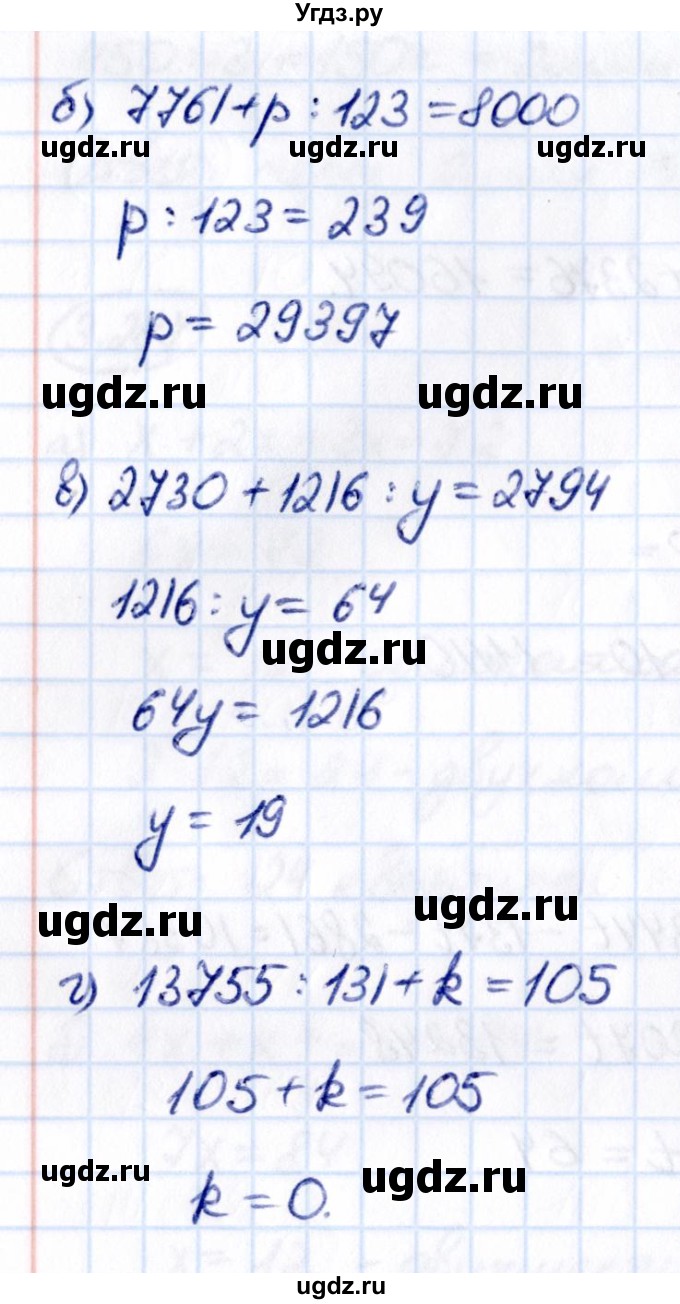 Угдз.ру
б) 7761+p : 123 = 8000
ugdz.ru ugdz.ru ugdz.ru
p : 123 = 239
p = 29397
ugdz.ru ugdz.ru
в) 2730 + 1216 : y = 2794
1216 : y = 64
ugdz.ru
64y = 1216
y = 19
ugdz.ru ugdz.ru
г) 13755 : 131 + k = 105
105 + k = 105
ugdz.ru ugdz.ru
k = 0.
ugdz.ru